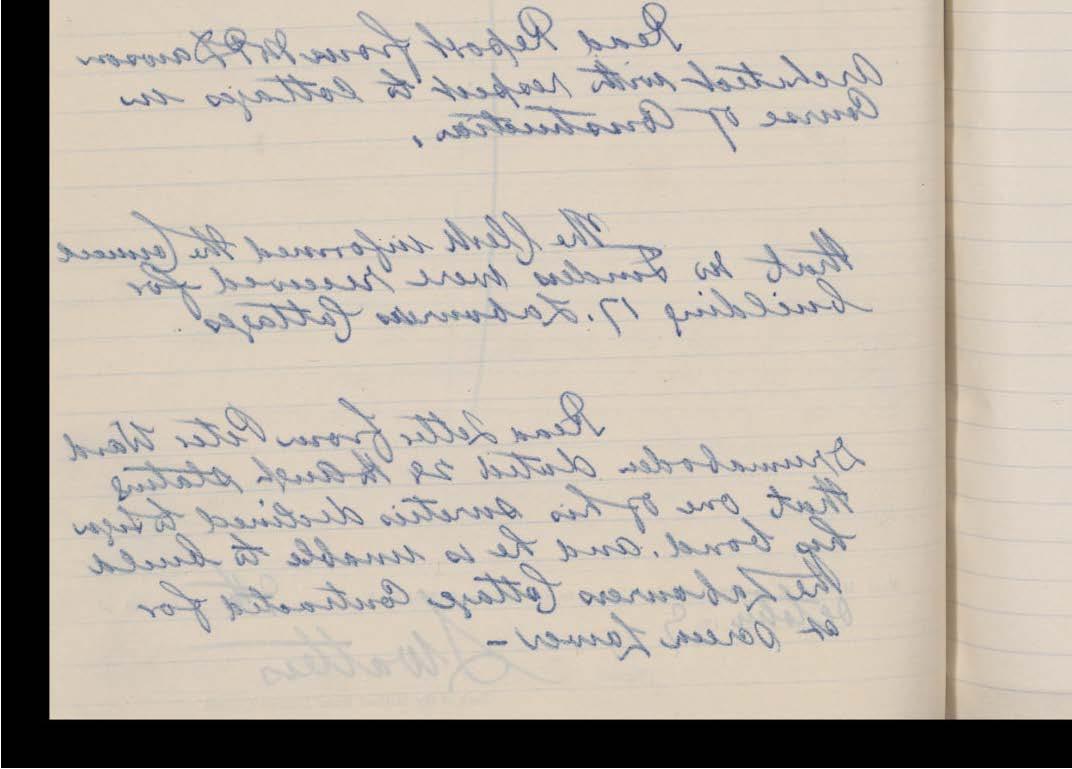 Read Report from W P Dawson
Architect with respect to Cottages in
Course of Construction.
The Clerk informed the Council
that no Tenders were received for
building 17. Labourers Cottages
Read Letter from Peter Ward
Drumaboden dated 29th Augt stating
that one of his sureties declined to sign
his bond. and he is unable to build
the Labourers Cottage Contracted for
at Doreen Lower -
October
Watters